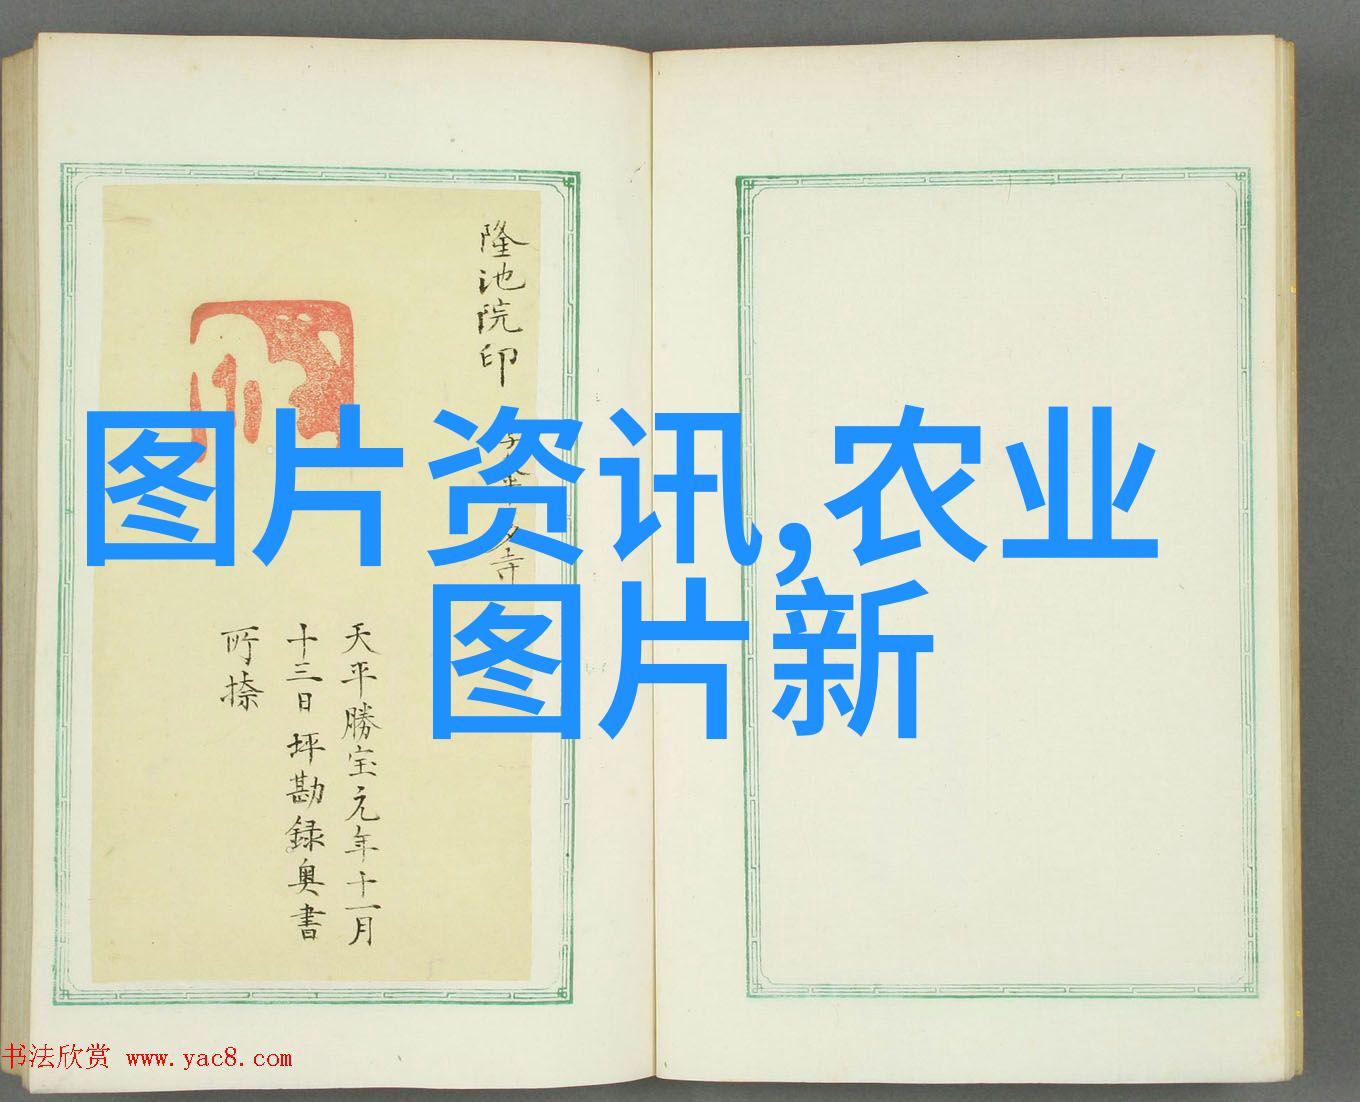 隆池院印
寺
天平勝宝元年十一月
十三日坪勘録奥書
所捺
图片资讯,农业
图片新
书法欣赏 www.yac8.com